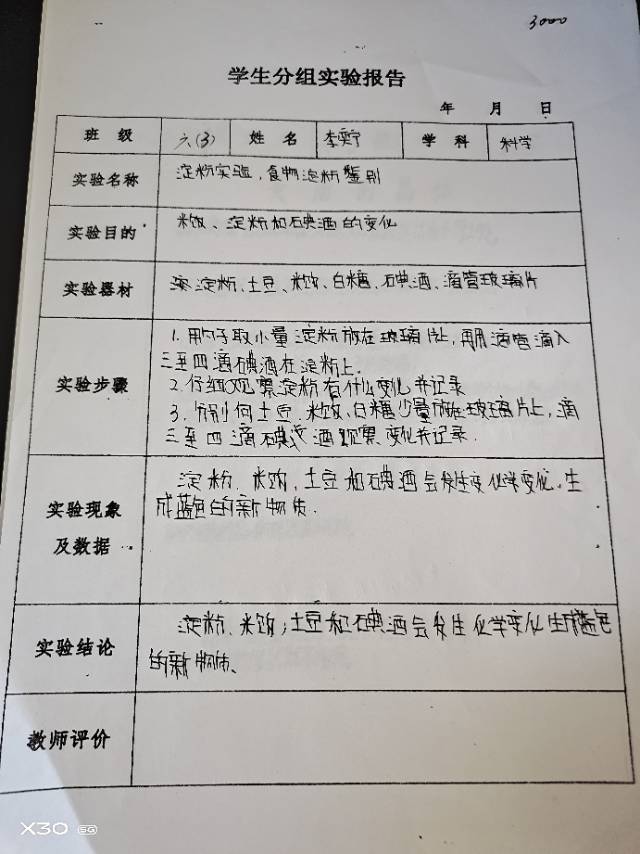 3000
学生分组实验报告
年 月 日
班 级 六(3) 姓 名 李 学 科 科学
实验名称 淀粉实验,食物淀粉鉴别
实验目的 米饭、淀粉和碘酒的变化
实验器材 淀粉、土豆、米饭、白糖、碘酒、滴管玻璃片
实验步骤
1. 用勺子取小量淀粉放在玻璃片上,再用滴管滴入
三至四滴碘酒在淀粉上.
2. 仔细观察淀粉有什么变化并记录
3. 分别何土豆、米饭、白糖少量放在玻璃片上,滴
三至四滴碘酒观察变化并记录.
实验现象
及数据
淀粉、米饭,土豆和碘酒会发生变化学变化。生
成蓝色的新物质.
实验结论
淀粉、米饭,土豆和碘酒会发生化学变化生成蓝色
的新物质、
教师评价
X30 5G